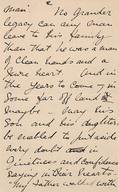 man! No Grander
legacy can any man
leave to his family
than that he was a man
of Clean hands and a
Pure heart. And in
the Years to Come - in
Some far off land
- May his
Son and his daughter
be enabled to put aside
every doubt and in
and Confidence
Saying in their hearts
My Father walked with